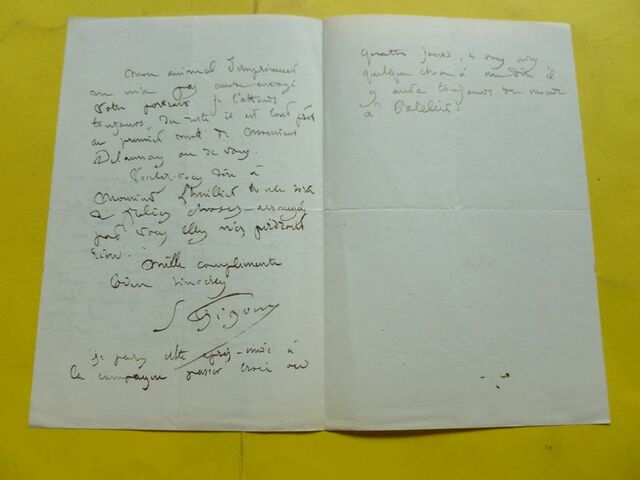 mon animal d'imprimeur
ne m'a pas encore envoyé
votre portrait je l'attends
toujours, du reste il est tout prêt
au premier mot de Monsieur
Delaunay ou de vous.
Voulez-vous dire à
Monsieur toute sorte
de jolies choses
pour vous
rien.
Mille compliments
bien sincères
je pars cette après-midi à
la campagne passer trois ou
quatre jours, si vous avez
quelque chose à me dire il
y aura toujours du monde
à l'atelier.